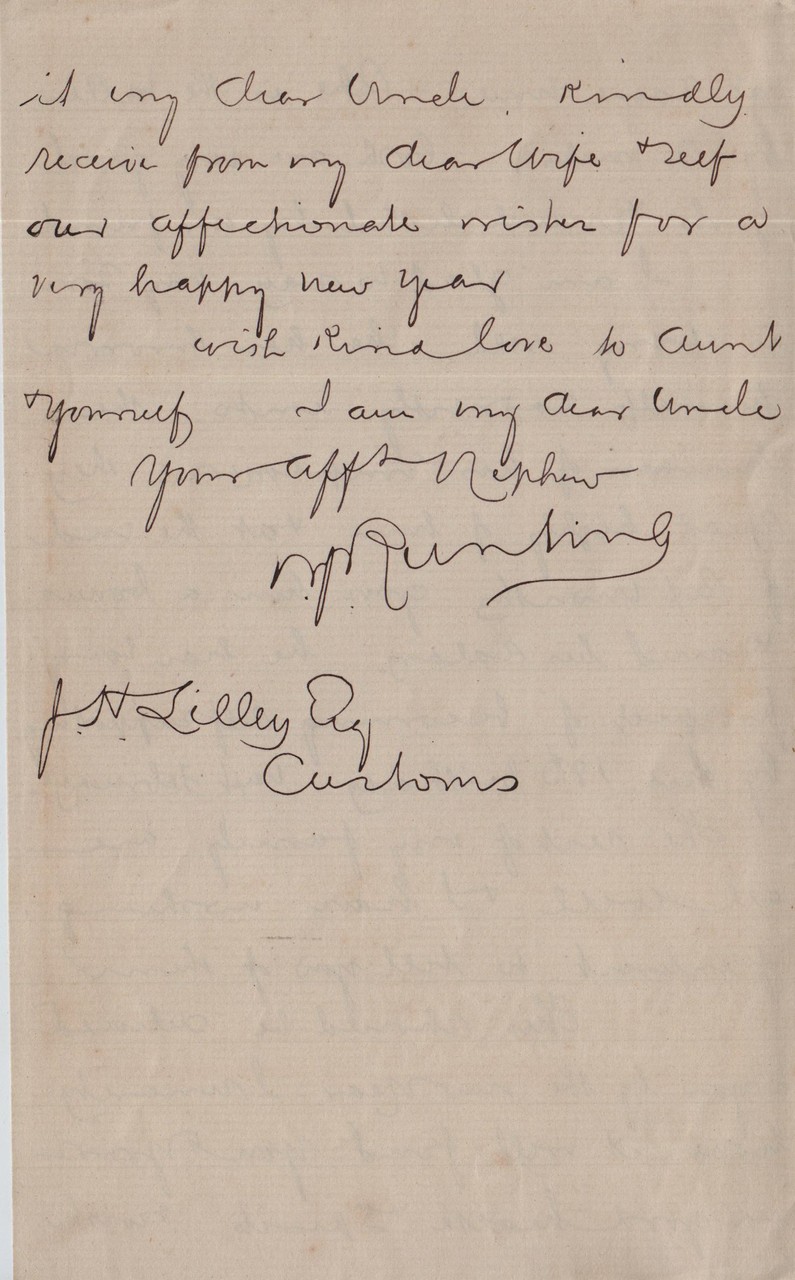 it my dear Uncle. Kindly
receive from my dear Wife & self
our affectionate wishes for a
very happy new year
with kind love to Aunt
& yourself I am my dear Uncle
Your afft Nephew
Runting
J. H. Lilley Esq
Customs